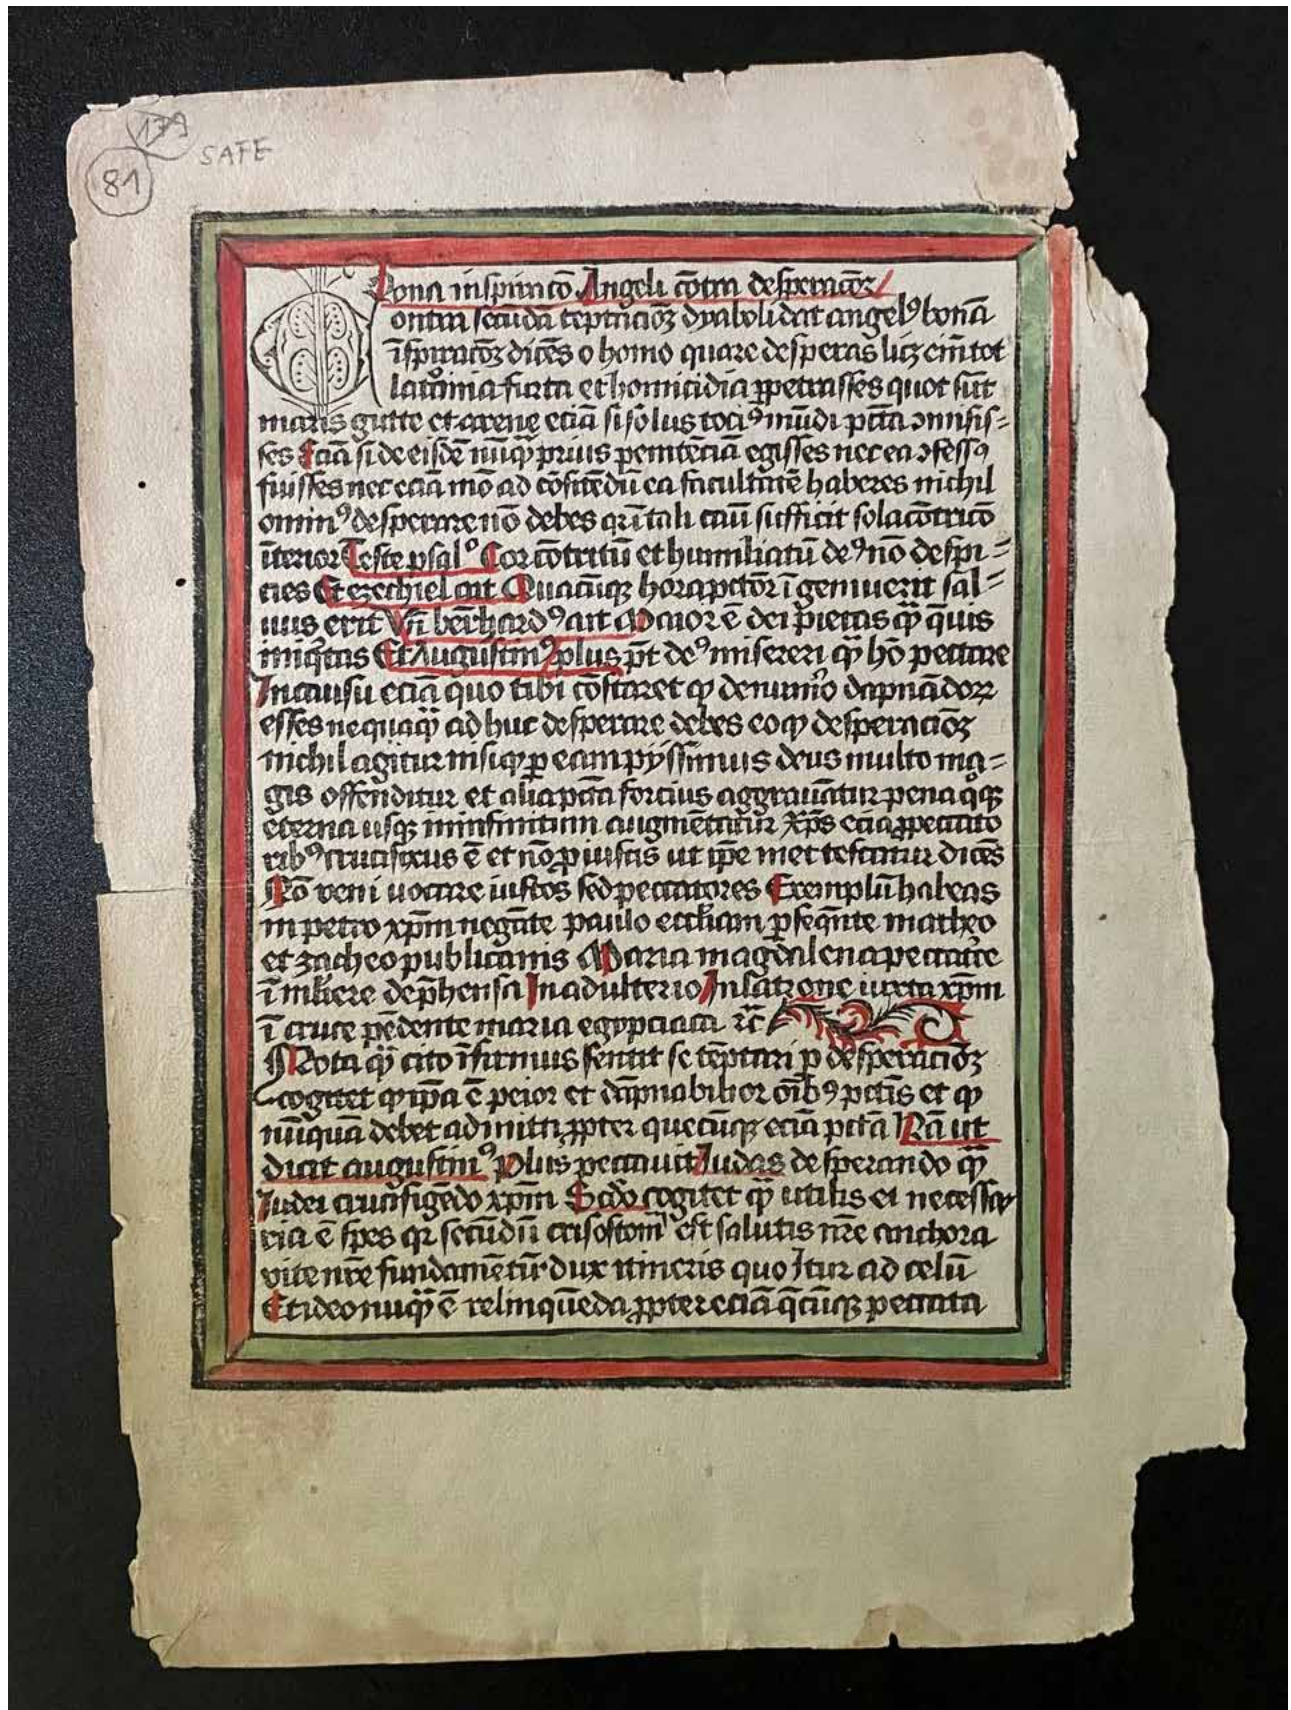 179
81 SAFE
Bona inspiracō Angeli cōtra desperacōꝫ
ontra secūdā tēptacionꝫ dyaboli dat angelꝰ bonā
īspiracōꝫ dicēs o homo quare desperas licꝫ eīm tot
latrōinia furta et homicidia ꝑpetrasses quot sūt
maris gutte et arene eciā si solus tociꝰ mūdi pctā ꝯmisis=
ses Eciā si de eisdē nūqͣ prius penitēciā egisses nec ea ꝯfessꝰ
fuisses nec eciā mō ad cōfitēdū ea facultatē haberes nichil
ominꝰ desperare nō debes qr ī tali casu sufficit sola cōtricō
īterior Teste psalº Cor cōtritū et humiliatū deꝰ nō despi=
cies Et ezechiel ait Quacūqꝫ hora pctōr īgemuerit sal=
uus erit Vn̄ bern̄hardꝰ ait Maior ē dei pietas qͣ̄ q̄uis
iniqͥtas Et Augustinꝰ plus pt̄ deꝰ misereri qͣ̄ hō peccare
In casu eciā quo tibi cōstaret ꝙ de numͦo dapnādorꝝ
esses nequaqͣ̄ ad huc desperare debes eo ꝙ desperacionꝫ
nichil agitur nisi ꝙ ꝑ eam pyssimus deus multo ma=
gis offenditur et alia pctā forcius aggrauātur pena qͦqꝫ
eterna usqꝫ in infinitum augmētatur Xp̄s eciā ꝓ peccato
ribꝰ crucifixus ē et nō ꝓ iustis ut ip̄e met testatur dicēs
Nō veni uocare iustos sed peccatores Exemplū habeas
in petro xp̄m negāte paulo eccl̄iam ꝑseq̄nte matheo
et zacheo publicanis Maria magdalena peccatͥce
ī mlīere dep̄hensa In adulterio In latrone iuxta xp̄m
ī cruce pēdente maria egypciaca ꝛc̄
Nota qͣ̄ cito īfirmus sentit se tēptari ꝑ desperacionꝫ
cogitet ꝙ ip̄a ē peior et dāpnabilior oībꝰ pctīs et ꝙ
nūquā debet admitti ꝓpter quecūqꝫ eciā pctā Nā ut
dicit augustinꝰ Plus peccauit Iudas desperando qͣ̄
Iudei crucifigēdo xp̄m Scdō cogitet qͣ̄ utilis et necessa
ria ē spes qr secūdū crisostomū est salutis nr̄e anchora
vite nr̄e fundamētū dux itineris quo Itur ad celū
Et ideo nūqͣ̄ ē relinquēda ꝓpter eciā q̄cūqꝫ peccata